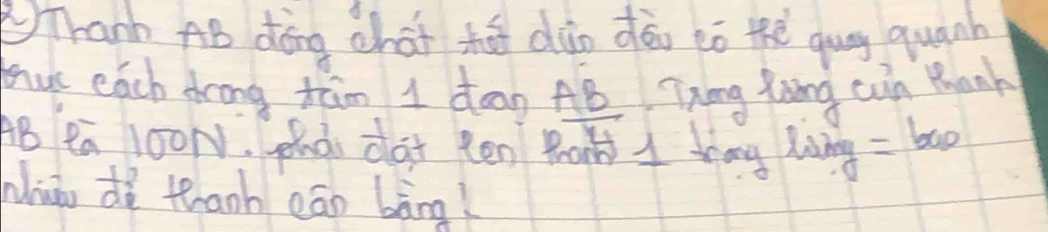 2) Thanh AB đồng chất tiết diện đều có thể quay quanh
trục cách trọng tâm 1 đoạn AB/4. Trọng lượng của thanh
AB là 100N. Phải đặt lên thanh 1 trọng lượng = bao
nhiêu để thanh cân bằng?